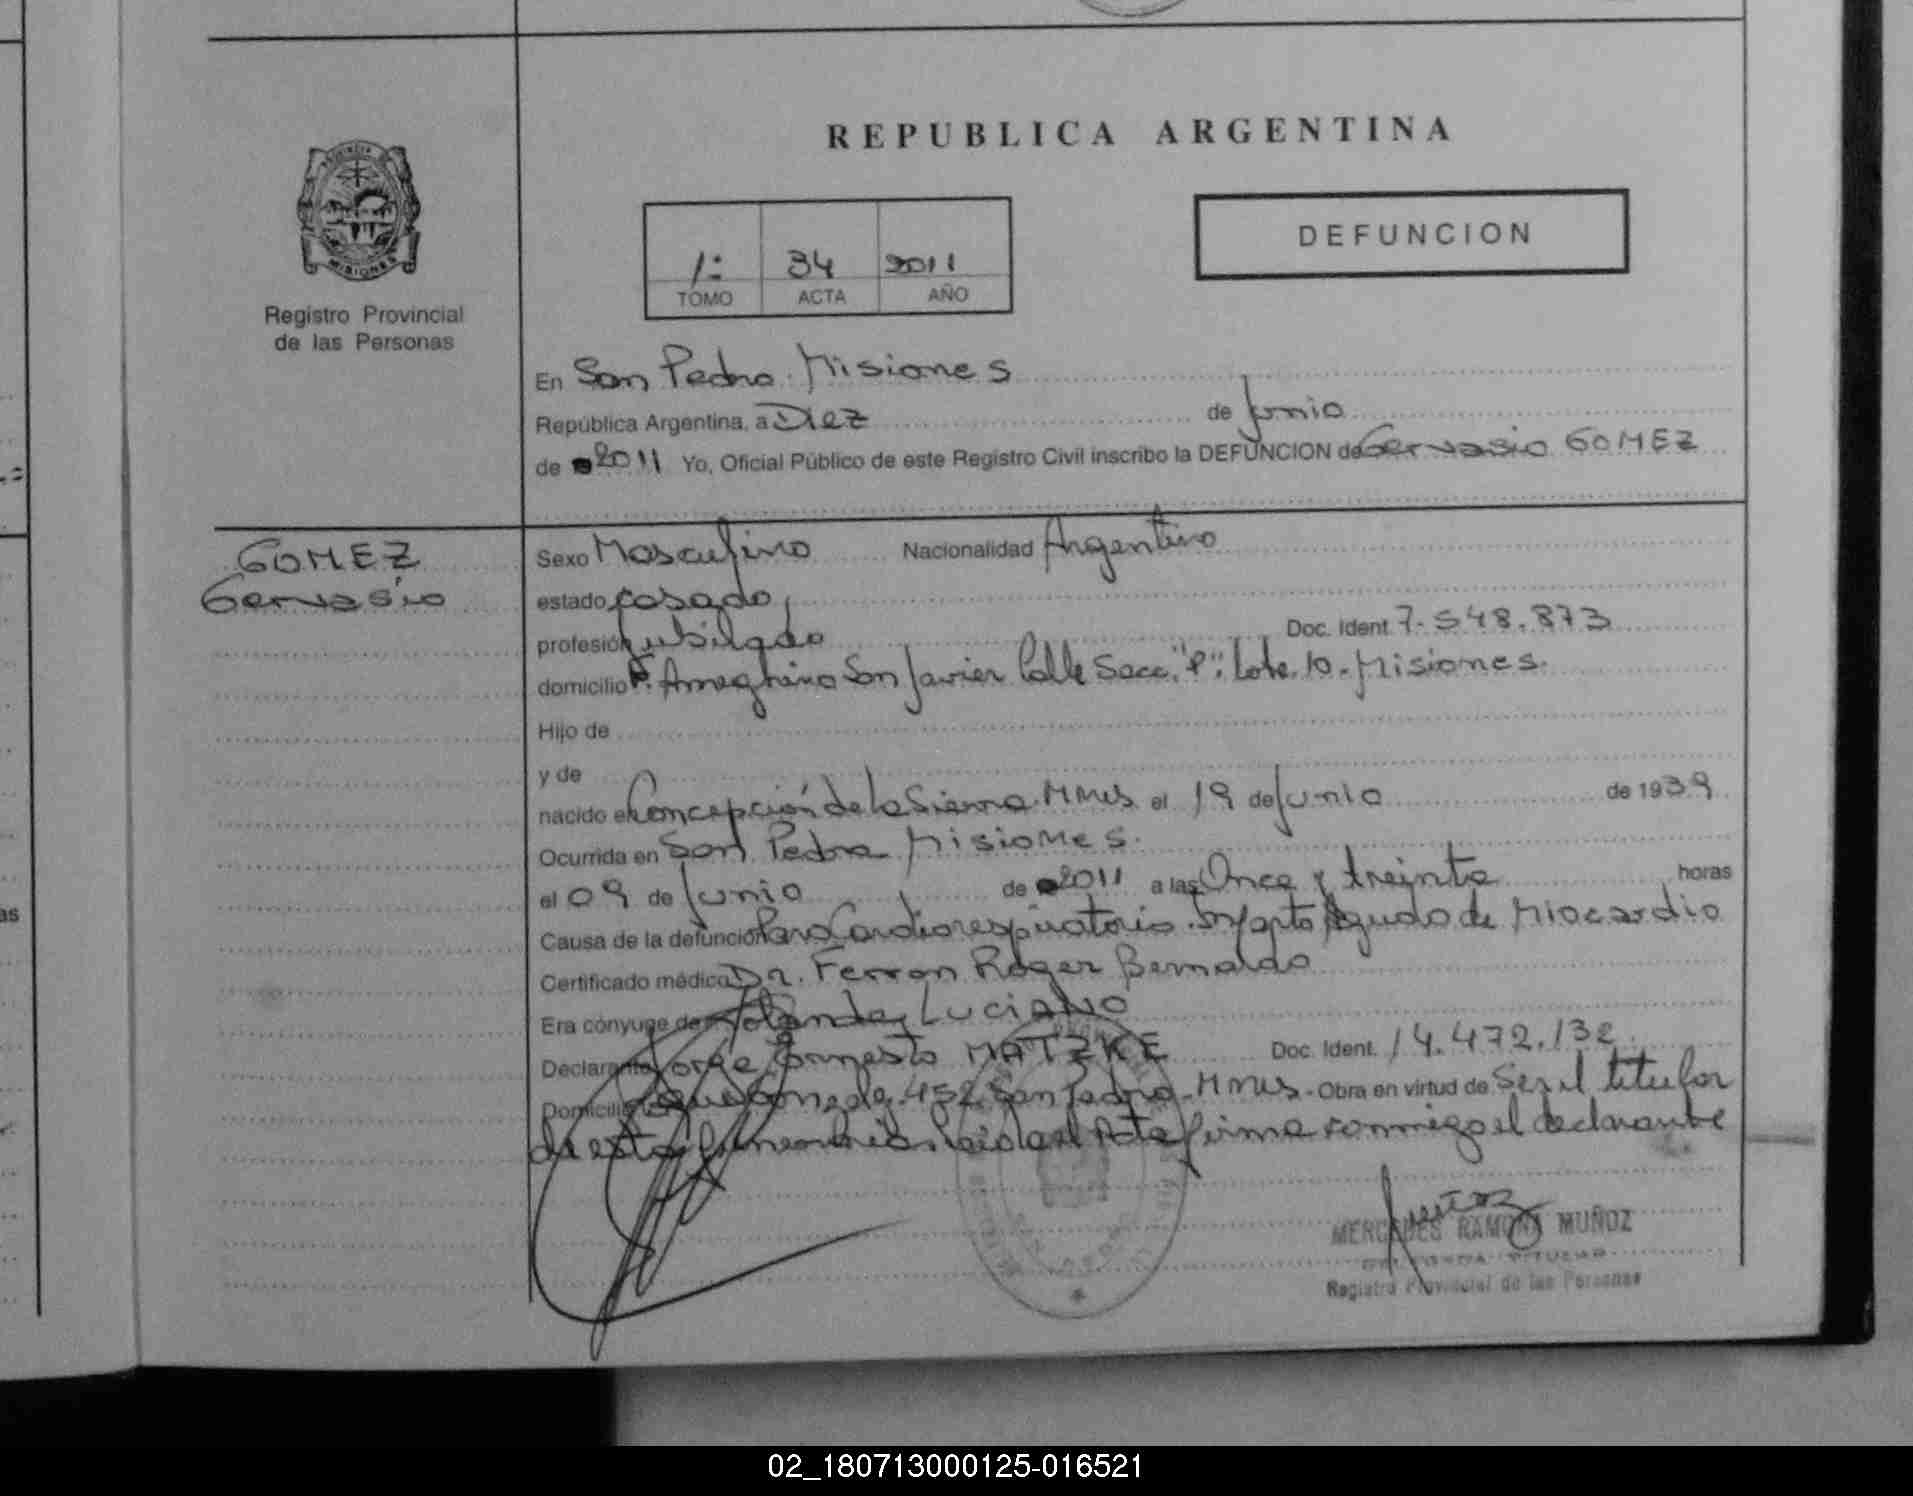 REPUBLICA ARGENTINA
PROVINCIA DE
MISIONES
Registro Provincial
de las Personas
1:
34
2011
TOMO
ACTA
AÑO
DEFUNCION
En San Pedro. Misiones
República Argentina, a Diez de Junio
de 2011 Yo, Oficial Público de este Registro Civil inscribo la DEFUNCION de Gervasio GOMEZ
GOMEZ
Gervasio
Sexo Masculino Nacionalidad Argentino
estado casado
profesión Jubilado Doc. Ident. 7.548.873
domicilio F. Ameghino San Javier Calle Secc. "P". Lote. 10. Misiones.
Hijo de
y de
nacido en Concepción de la Sierra. Mnes el 19 de Junio de 1939
Ocurrida en San Pedro Misiones.
el 09 de Junio de 2011 a las Once y treinta horas
Causa de la defunción Paro Cardiorespiratorio. Infarto Agudo de Miocardio
Certificado médico Dr. Ferron Roger Bernardo
Era cónyuge de Yolanda LUCIANO
Declarante Jorge Ernesto MATZKE Doc. Ident. 14.472.132.
Domicilio 452 San Pedro. Mnes. Obra en virtud de Ser el titular
de esta funeraria. Leida el Acta firma conmigo el declarante
MERCEDES RAMONA MUÑOZ
TITULAR
Registro Provincial de las Personas
as
02_180713000125-016521